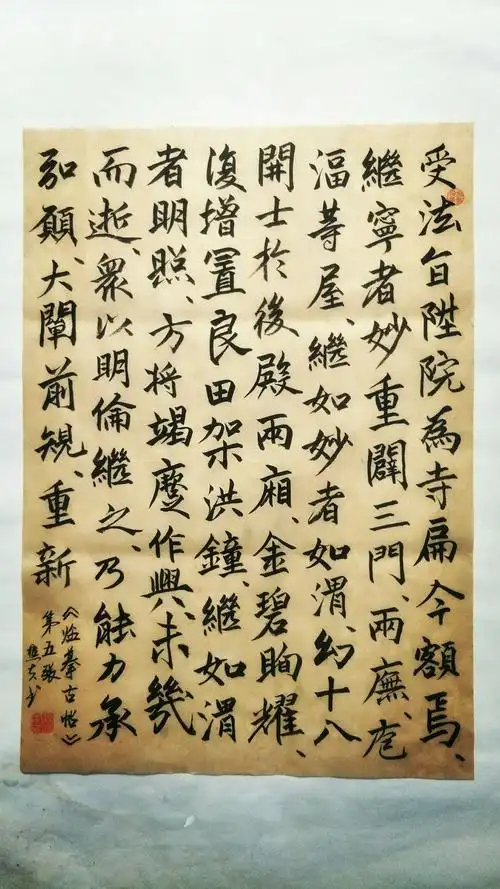 受法旨陞院為寺扁今額焉、
繼寧者妙重闢三門、兩廡、庖
湢等屋、繼如妙者如渭、幻十八
開士於後殿兩廂、金碧眴耀、
復增置良田架洪鐘、繼如渭
者明照、方將竭作興、未幾
而逝、衆以明倫繼之、乃能力承
弘願、大闡前規、重新
《临摹古帖》
第五張
书